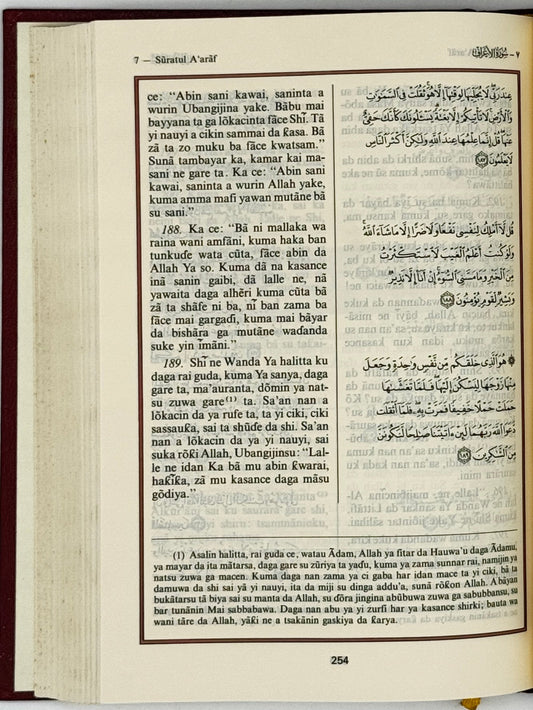 7 — Sūratul A'arāf
٧ - سُورَةُ الأَعْرَافِ
ce: “Abin sani kawai, saninta a
wurin Ubangijina yake. Bābu mai
bayyana ta ga lōkacinta fāce Shī. Tā
yi nauyi a cikin sammai da ƙasa. Bā
zā ta zo muku ba fāce kwatsam.”
Sunā tambayar ka, kamar kai ma-
sani ne gare ta. Ka ce: “Abin
sani kawai, saninta a wurin Allah yake,
kuma amma mafi yawan mutāne bā
su sani.”
188. Ka ce: “Bā ni mallaka wa
raina wani amfāni, kuma haka ban
tunkuɗe wata cūta, fāce abin da
Allah Ya so. Kuma dā na kasance
inā sanin gaibi, dā lalle ne, nā
yawaita daga alhēri kuma cūta bā
zā ta shāfe ni ba, nī ban zama ba
fāce mai gargaɗi, kuma mai bāyar
da bishāra ga mutāne waɗanda
suke yin īmāni.”
189. Shī ne Wanda Ya halitta ku
daga rai guda, kuma Ya sanya, daga
gare ta, ma'auranta, dōmin ya nat-
su zuwa gare⁽¹⁾ ta. Sa'an nan a
lōkacin da ya rufe ta, ta yi ciki, ciki
sassauƙa, sai ta shūɗe da shi. Sa'an
nan a lōkacin da ya yi nauyi, sai
suka rōƙi Allah, Ubangijinsu: “Lal-
le ne idan Ka bā mu abin ƙwarai,
haƙīƙa, zā mu kasance daga māsu
gōdiya.”
عِندَ رَبِّي لَا يُجَلِّيهَا لِوَقْتِهَا إِلَّا هُوَ ثَقُلَتْ فِي السَّمَٰوَٰتِ
وَالْأَرْضِ لَا تَأْتِيكُمْ إِلَّا بَغْتَةً يَسْـَٔلُونَكَ كَأَنَّكَ حَفِيٌّ
عَنْهَا قُلْ إِنَّمَا عِلْمُهَا عِندَ اللَّهِ وَلَٰكِنَّ أَكْثَرَ النَّاسِ
لَا يَعْلَمُونَ ١٨٧
قُل لَّا أَمْلِكُ لِنَفْسِي نَفْعًا وَلَا ضَرًّا إِلَّا مَا شَاءَ اللَّهُ
وَلَوْ كُنتُ أَعْلَمُ الْغَيْبَ لَاسْتَكْثَرْتُ
مِنَ الْخَيْرِ وَمَا مَسَّنِيَ السُّوءُ إِنْ أَنَا إِلَّا نَذِيرٌ
وَبَشِيرٌ لِّقَوْمٍ يُؤْمِنُونَ ١٨٨
۞ هُوَ الَّذِي خَلَقَكُم مِّن نَّفْسٍ وَٰحِدَةٍ وَجَعَلَ
مِنْهَا زَوْجَهَا لِيَسْكُنَ إِلَيْهَا فَلَمَّا تَغَشَّىٰهَا
حَمَلَتْ حَمْلًا خَفِيفًا فَمَرَّتْ بِهِ فَلَمَّا أَثْقَلَت
دَّعَوَا اللَّهَ رَبَّهُمَا لَئِنْ ءَاتَيْتَنَا صَٰلِحًا لَّنَكُونَنَّ
مِنَ الشَّٰكِرِينَ ١٨٩
(1) Asalin halitta, rai guda ce, watau Ādam, Allah ya fitar da Hauwa'u daga Ādamu,
ya mayar da ita mātarsa, daga gare su zūriya ta yaɗu, kuma ya zama sunnar rai, namijin ya
natsu zuwa ga macen. Kuma daga nan zama ya ci gaba har idan mace ta yi ciki, bā ta
damuwa da shi sai yā yi nauyi, ita da miji su dinga addu'a, sunā rōƙon Allah. A bāyan
bukātarsu tā biya sai su manta da Allah, su ɗōra jingina abūbuwa zuwa ga sabubbansu, su
bar tunānin Mai sabbabawa. Daga nan abu ya yi zurfi har ya kasance shirki; bauta wa
wani tāre da Allah, yāƙi ne a tsakānin gaskiya da ƙarya.
254